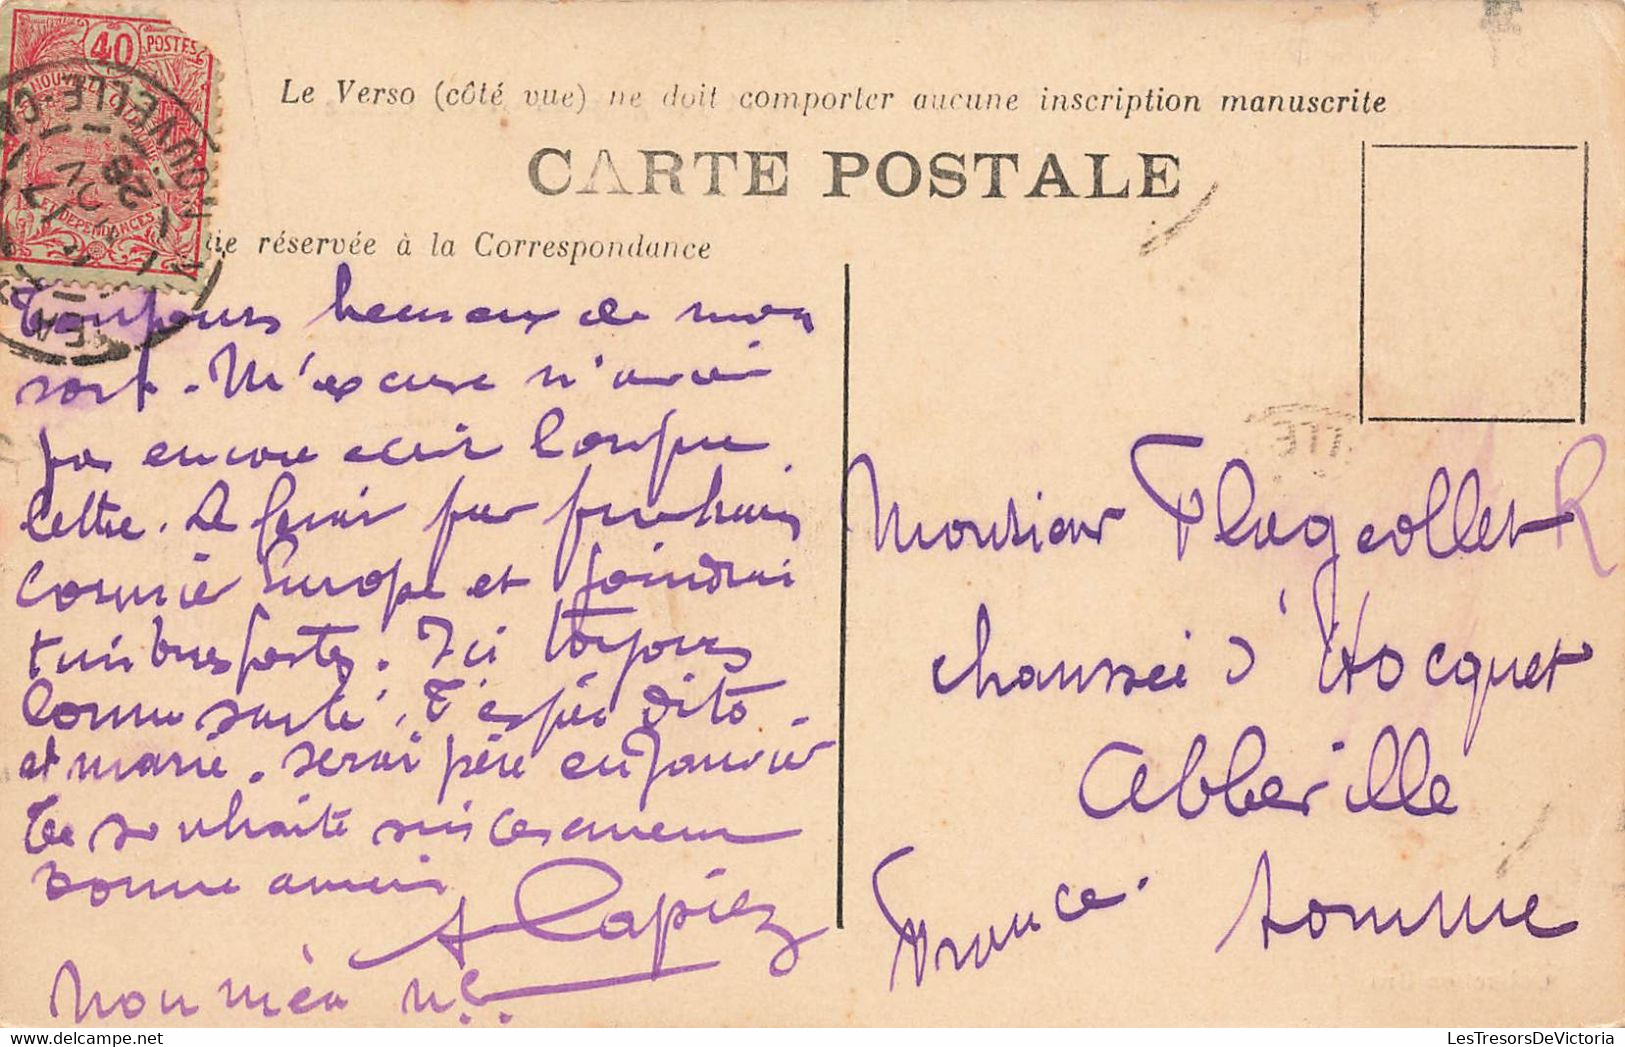 40 POSTES
NOUVELLE CALÉDONIE
ET DÉPENDANCES
NOUVELLE-CA
28
NOV
Le Verso (côté vue) ne doit comporter aucune inscription manuscrite
CARTE POSTALE
tie réservée à la Correspondance
Toujours heureux de mon
sort. M'excuse n'avoir
pas encore écrit longue
lettre. Le ferai par prochain
Courrier Europe et joindrai
timbres postes. Ici toujours
bonne santé, t'espère dito.
et marié. serai père en Janvier
Te souhaite sincèrement
bonne année
A Lapiez
Nouméa N.C.
Monsieur Flageollet R
chaussée d'Hocquet
Abbeville
Somme
France.
LesTresorsDeVictoria